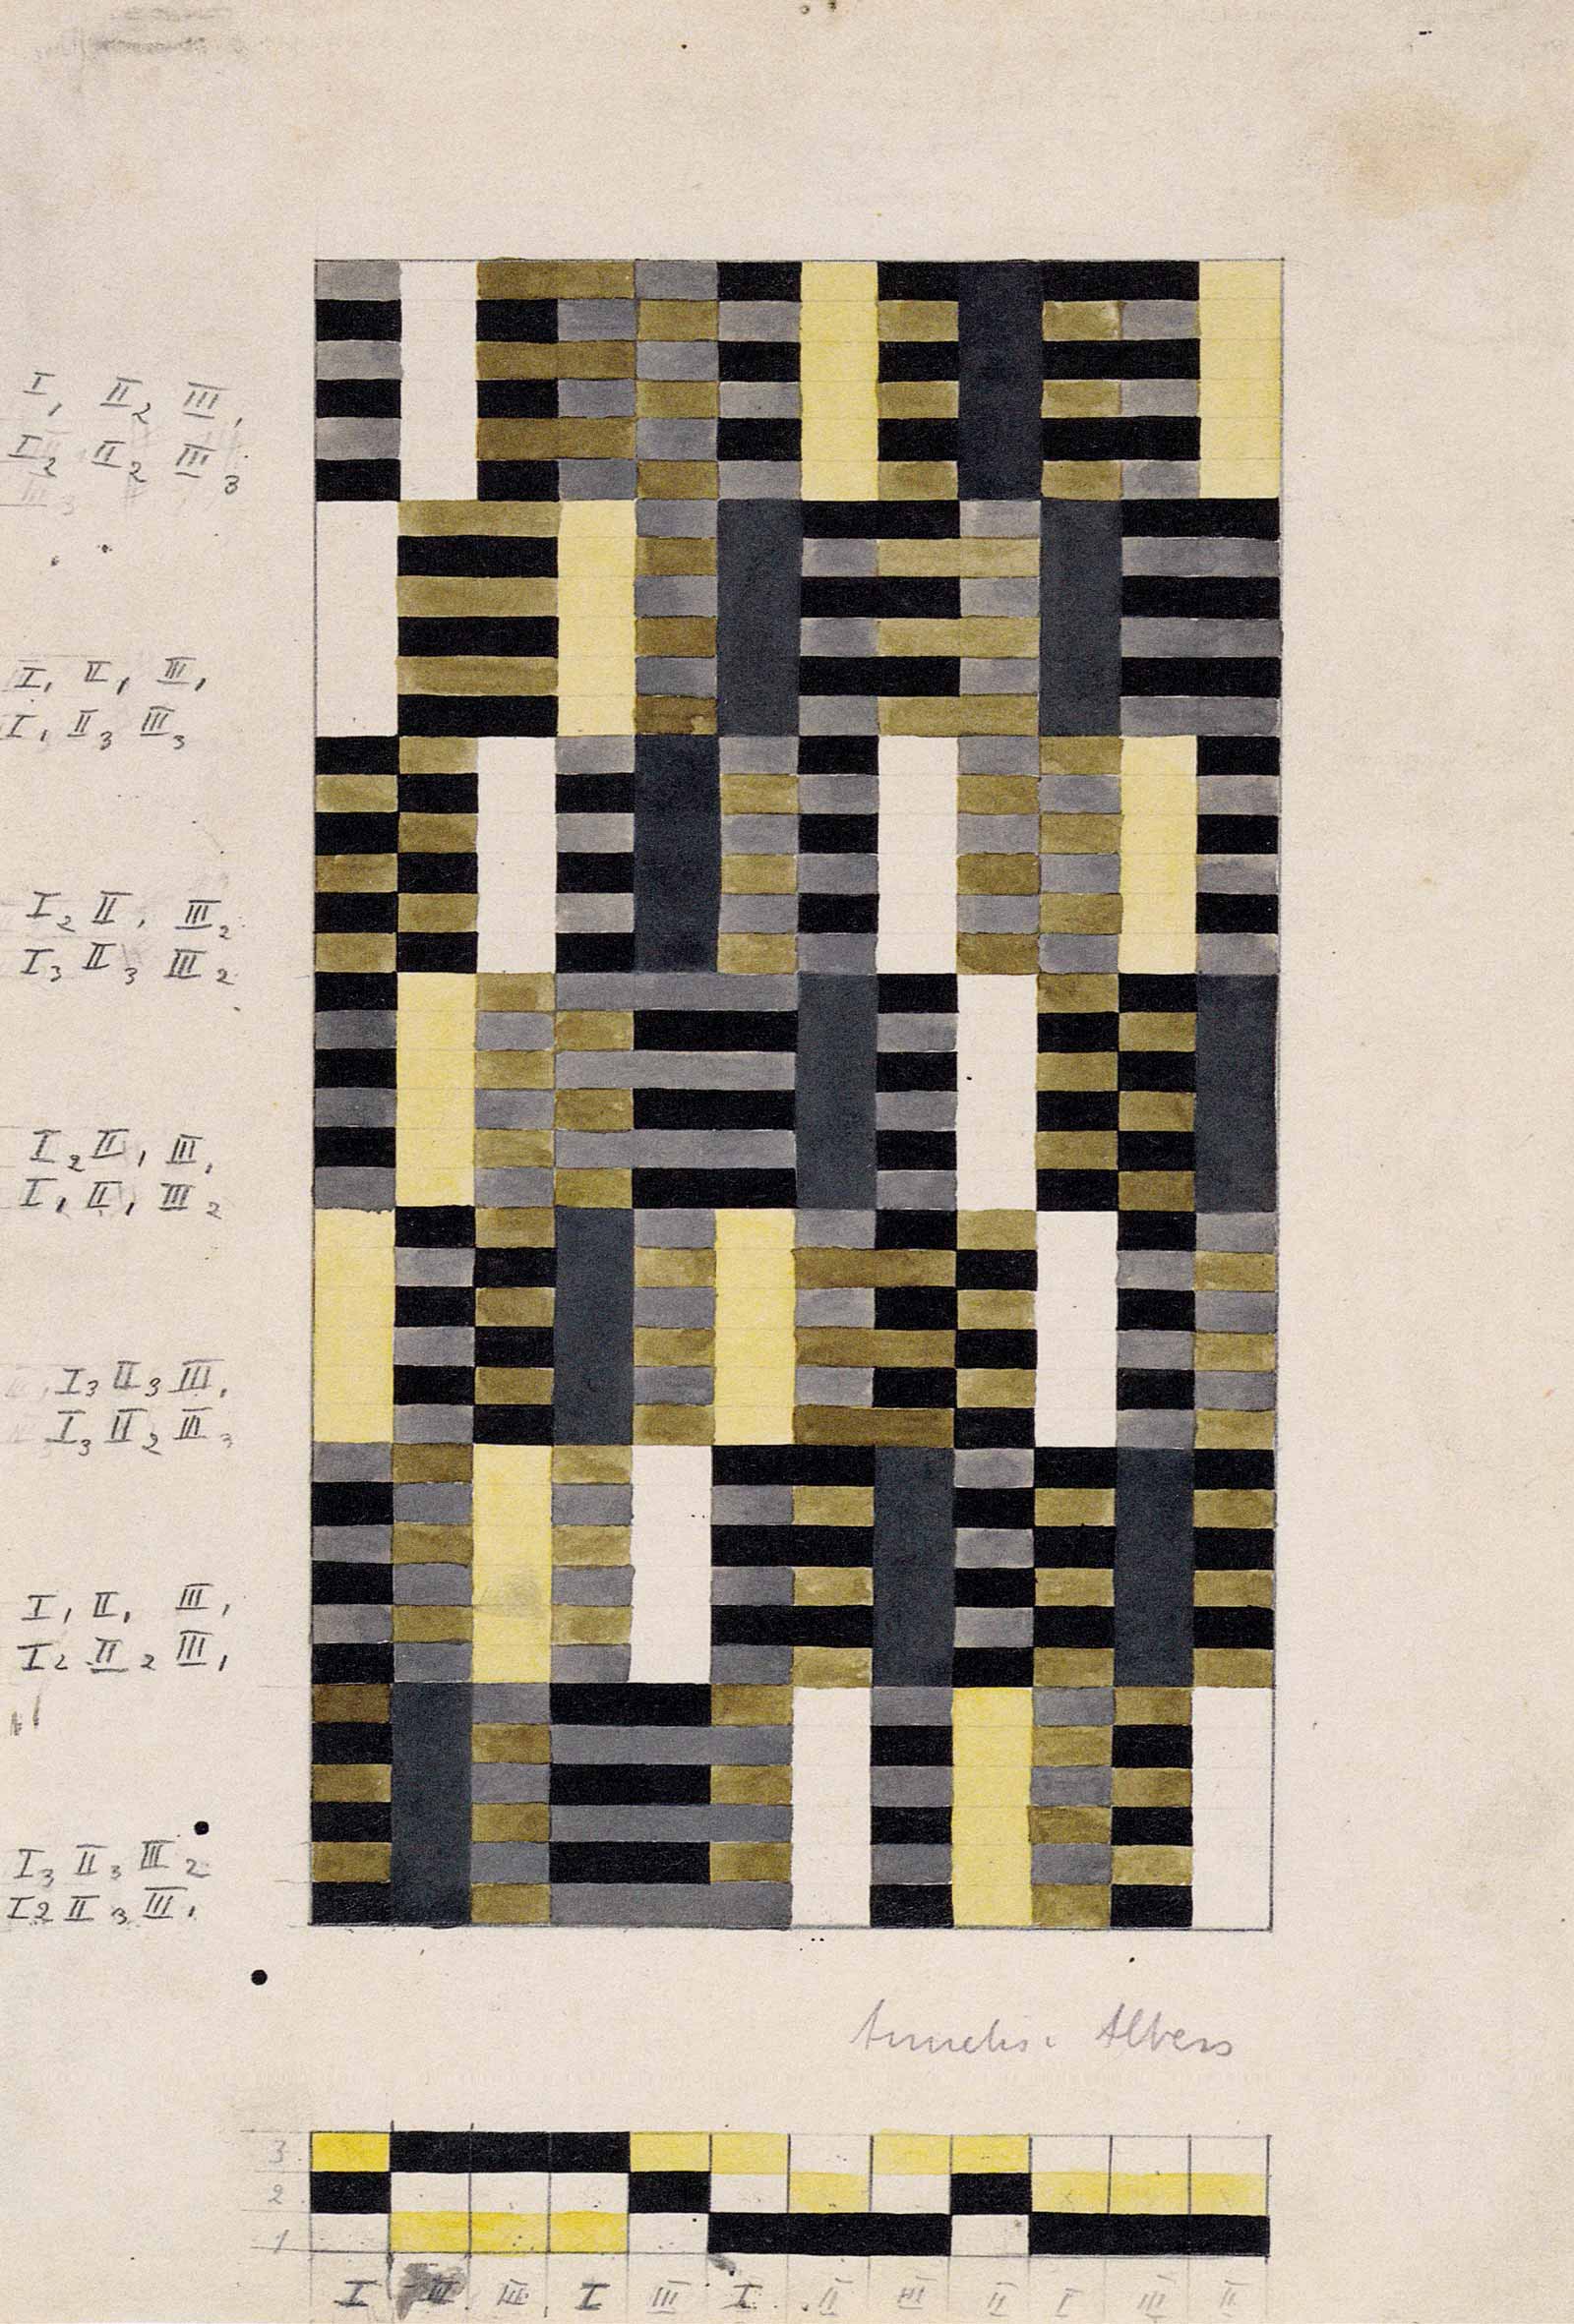 I, II2 III,
I2 II2 III3
I, II, III,
I, II3 III3
I2 II, III2
I3 II3 III2
I2 II, III,
I, II, III2
I3 II3 III,
I3 II2 III3
I, II, III,
I2 II2 III,
I3 II3 III2
I2 II3 III,
Annelise Albers
3
2
1
I III I III I II III II I III II